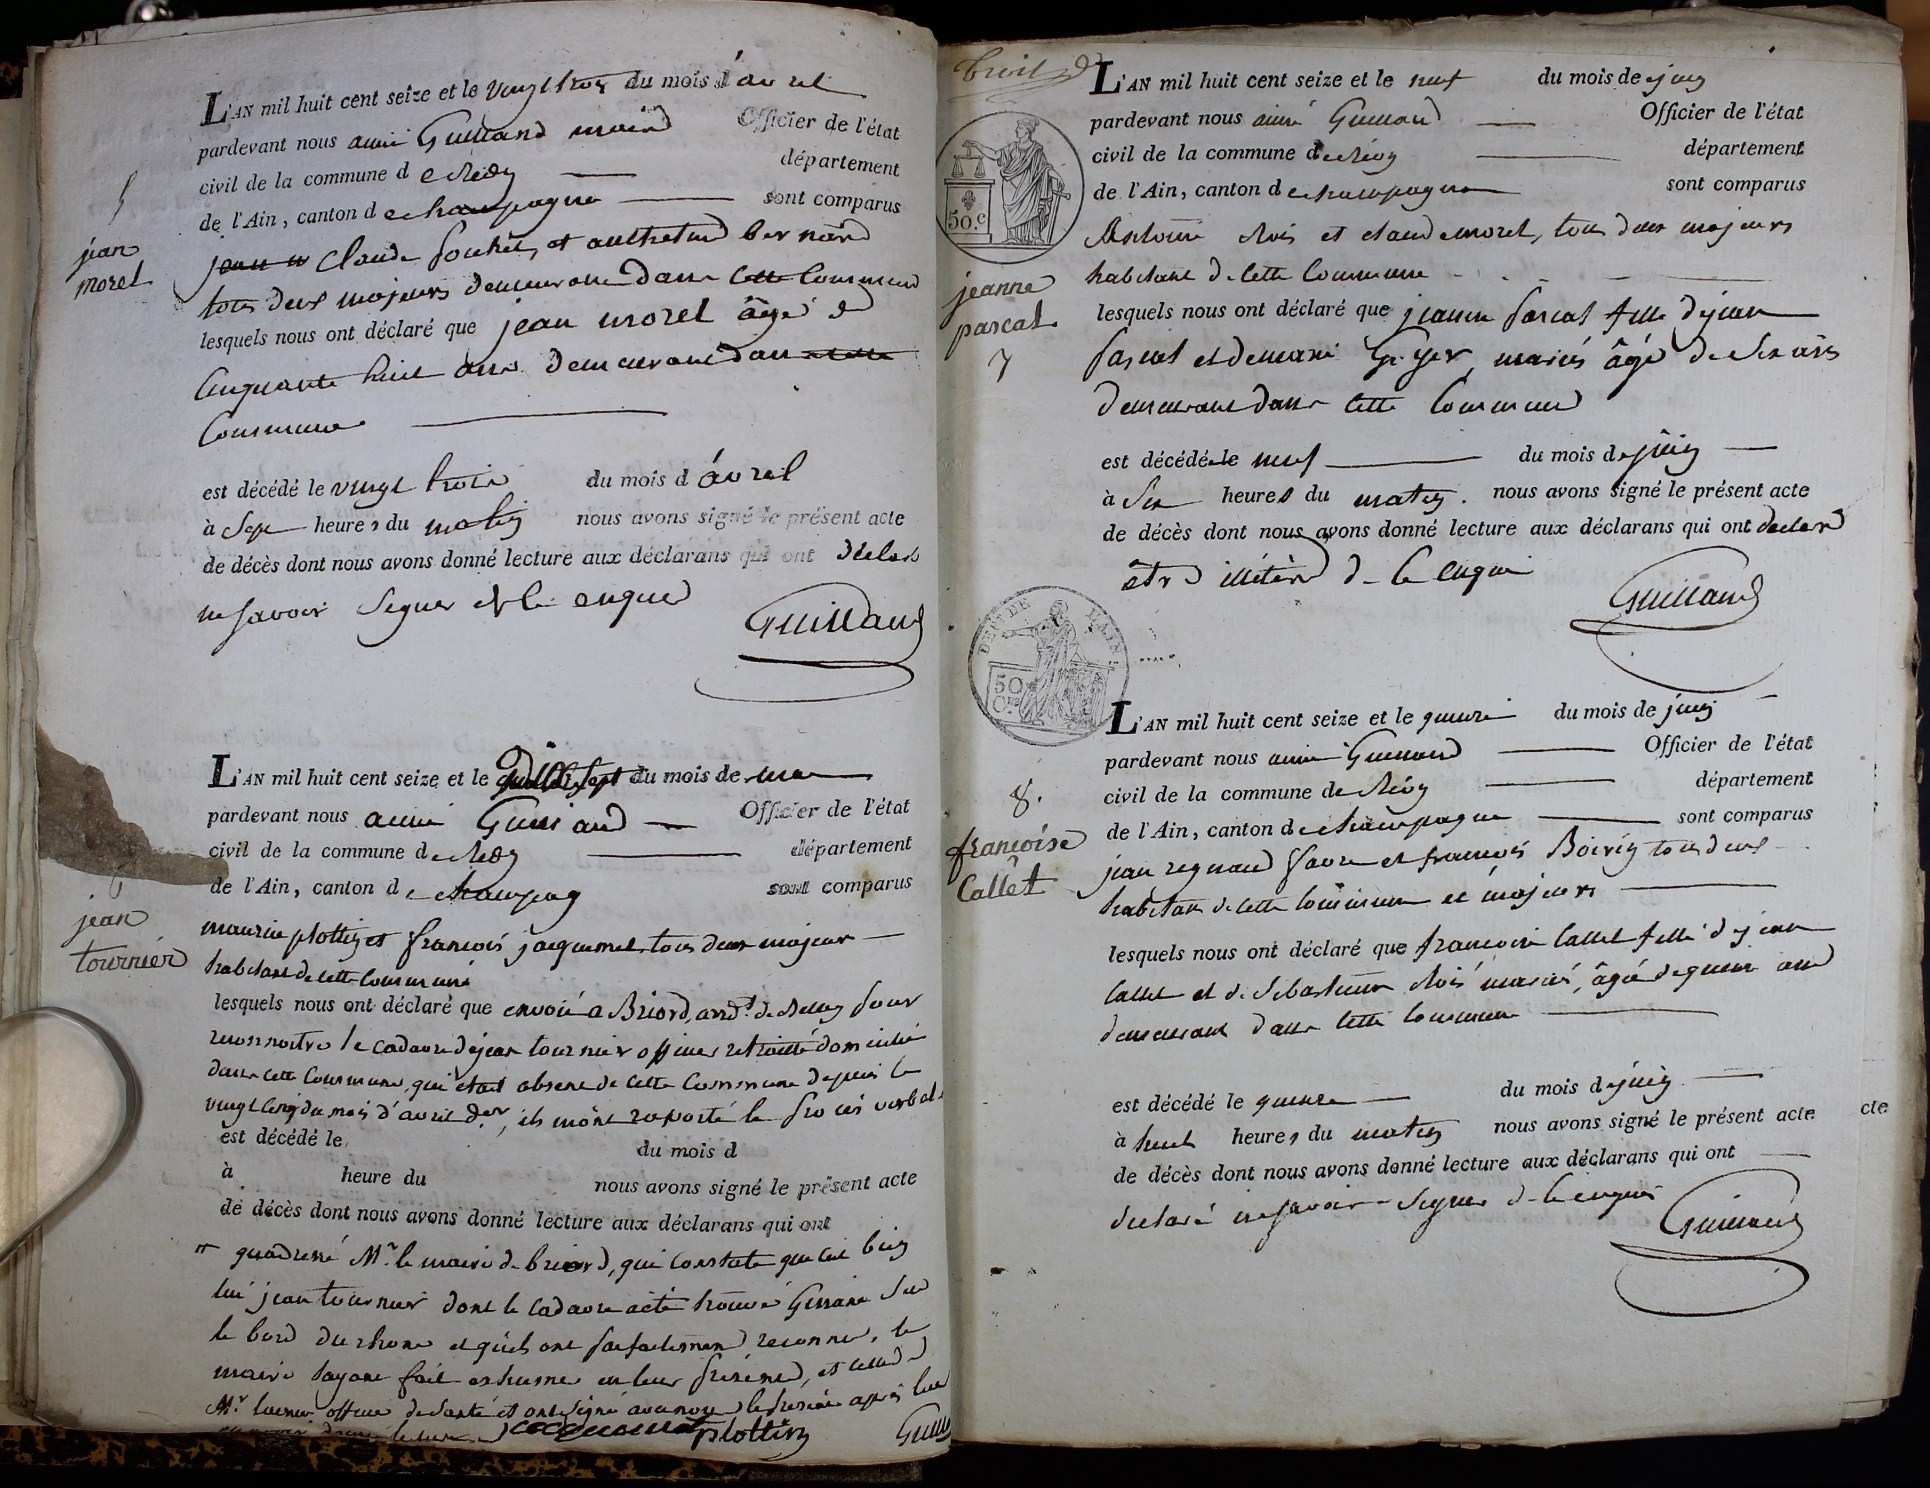 L'AN mil huit cent seize et le vingt trois du mois d'avril
pardevant nous aimé Guilland maire Officier de l'état
civil de la commune de département
de l'Ain, canton de champagne sont comparus
Claude et Bernard
tous deux majeurs demeurant dans cette Commune
lesquels nous ont déclaré que jean morel âgé de
Cinquante huit ans demeurant dans cette
Commune
est décédé le vingt trois du mois d'avril
à Sept heures du matin nous avons signé le présent acte
de décès dont nous avons donné lecture aux déclarans qui ont déclaré
ne savoir signer de ce enquis
Guilland
5
jean
morel
L'AN mil huit cent seize et le sept du mois de mai
pardevant nous aimé Guilland Officier de l'état
civil de la commune de département
de l'Ain, canton de champagne sont comparus
maurice plottin et françois jacquemet tous deux majeurs
habitant de cette Commune
lesquels nous ont déclaré que envoié a Briord, arrdt de Belley pour
reconnoitre le cadavre de jean tournier officier retraité domicilié
dans cette Commune, qui étoit absent de cette Commune depuis le
vingt cinq du mois d'avril der, ils m'ont raporté le procès verbal
est décédé le du mois d
à heure du nous avons signé le présent acte
de décès dont nous avons donné lecture aux déclarans qui ont
qu'a dressé Mr le maire de briord, qui constate que c'est bien
lui jean tournier dont le cadavre a été trouvé Gissant sur
le bord du rhone et qu'ils ont parfaitement reconnu, le
maire l'ayant fait exhumer en leur présence, et celle de
Mr officier de santé et ont signé avec nous le présent après leur
plottin
6
jean
tournier
L'AN mil huit cent seize et le neuf du mois de juin
pardevant nous aimé Guilland Officier de l'état
civil de la commune de département
de l'Ain, canton de champagne sont comparus
Antoine et claude morel, tous deux majeurs
habitant de cette Commune
lesquels nous ont déclaré que jeanne pascal fille de jean
pascal et de marie mariés âgé de six ans
demeurant dans cette Commune
est décédé le neuf du mois de juin
à Six heures du matin. nous avons signé le présent acte
de décès dont nous avons donné lecture aux déclarans qui ont déclaré
être illitéré de ce enquis
Guilland
50.c
jeanne
pascal
7
DEP.T DE L'AIN
50
C.
L'AN mil huit cent seize et le quinze du mois de juin
pardevant nous aimé Guilland Officier de l'état
civil de la commune de département
de l'Ain, canton de champagne sont comparus
jean regnaud favre et françois Boirin tous deux
habitans de cette Commune et majeurs
lesquels nous ont déclaré que françoise Callet fille de jean
Callet et de mariés, âgée de quinze ans
demeurant dans cette Commune
est décédé le quinze du mois de juin
à huit heures du matin nous avons signé le présent acte
de décès dont nous avons donné lecture aux déclarans qui ont
déclaré ne savoir signer de ce enquis
Guilland
8.
françoise
Callet
cte